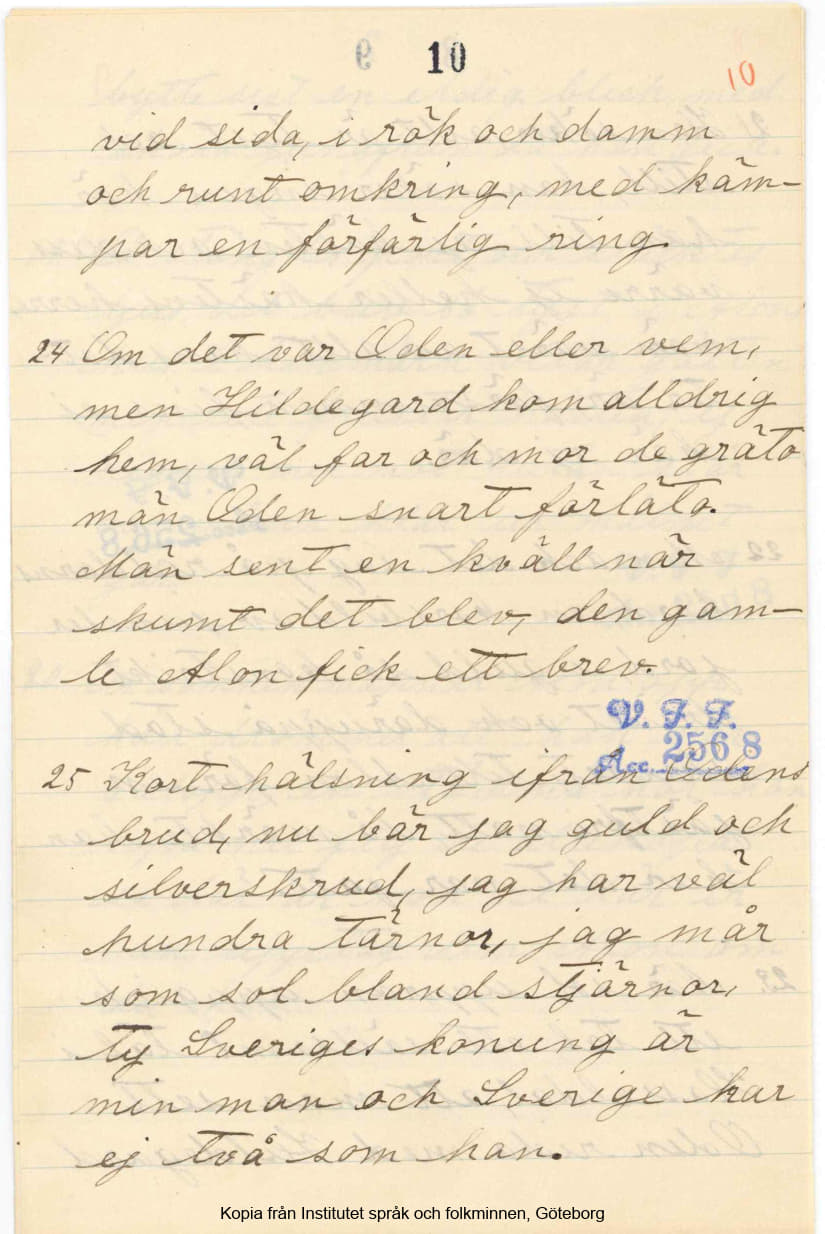 10
10
vid sida, i rök och damm
och runt omkring, med käm-
par en förfärlig ring.
24 Om det var Oden eller vem,
men Hildegard kom alldrig
hem, väl far och mor de gräto
män Oden snart förläto.
Män sent en kväll när
skumt det blev, den gam-
le Alon fick ett brev.
V. F. F.
Acc. 2568
25 Kort hälsning ifrån Odens
brud, nu bär jag guld och
silverskrud, jag har väl
hundra tärnor, jag mår
som sol bland stjärnor,
ty Sveriges konung är
min man och Sverige har
ej två som han.
Kopia från Institutet språk och folkminnen, Göteborg